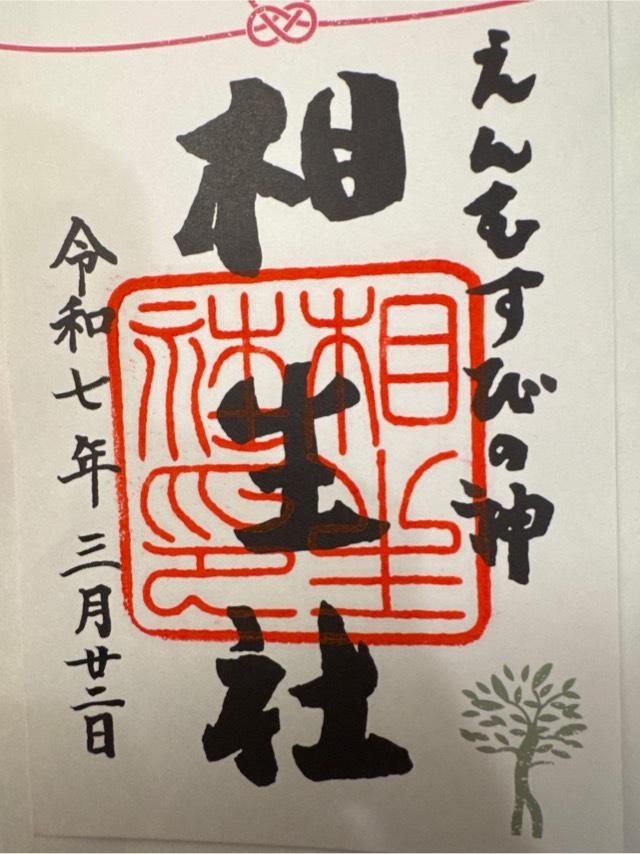 えんむすびの神
相生社
相生社印
令和七年三月廿二日